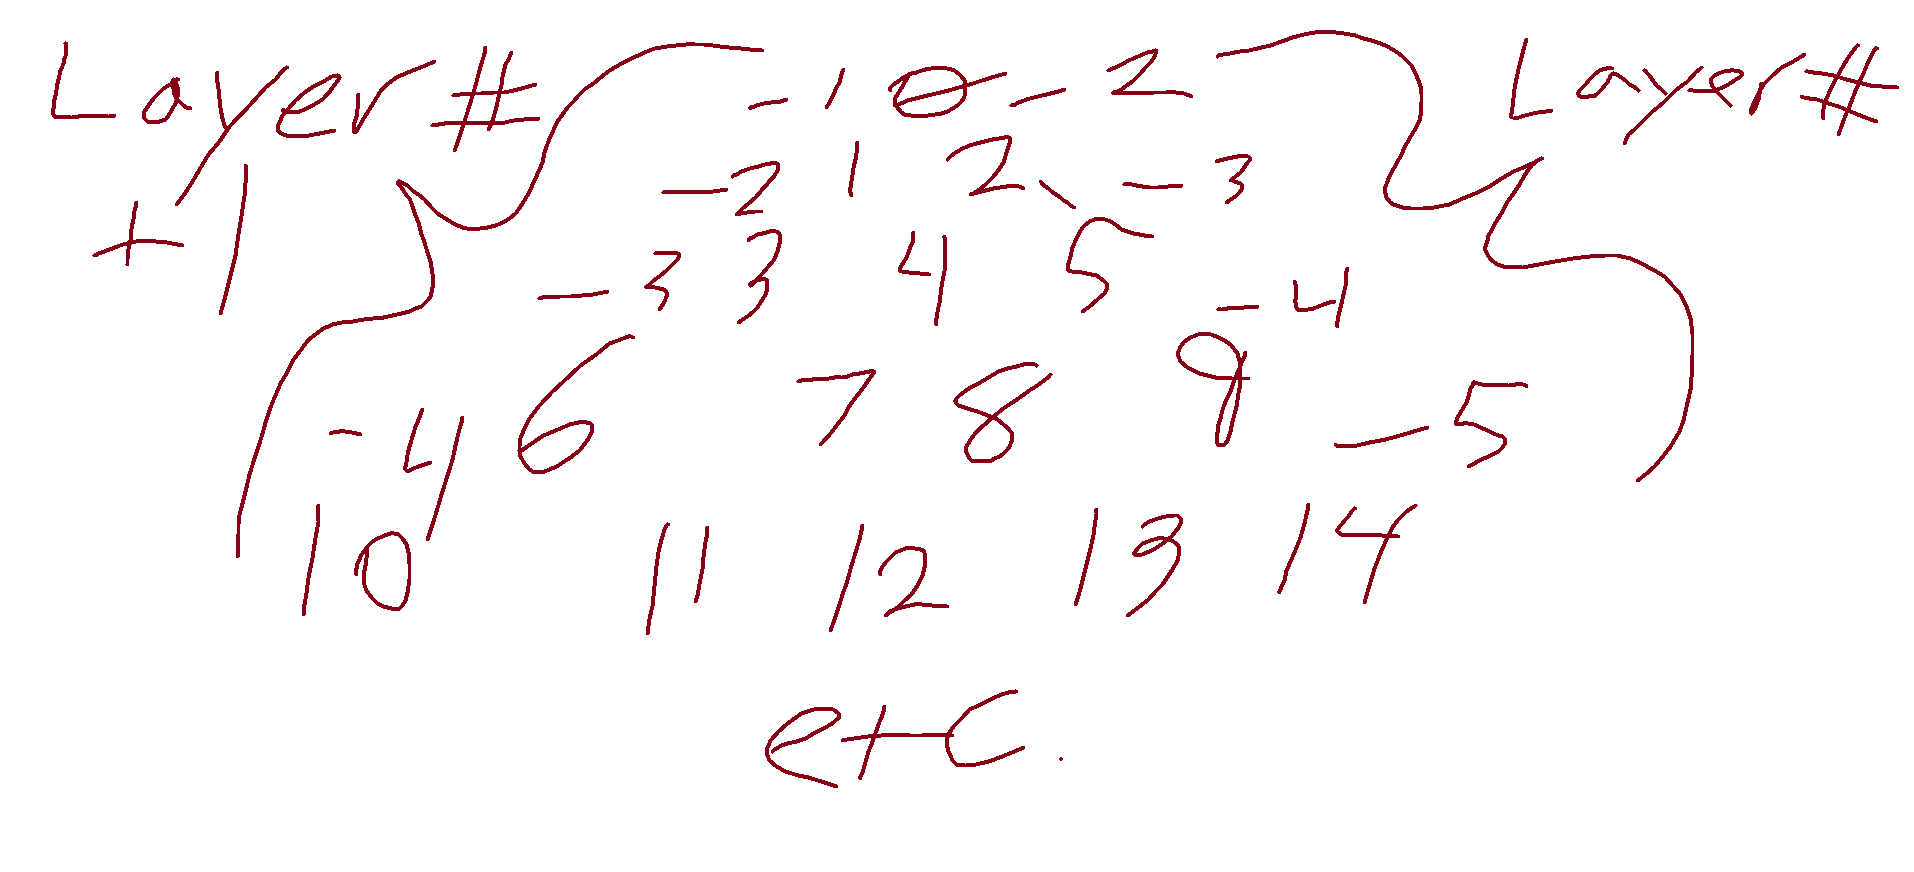 Layer# -1 0 -2 Layer#
+1 -2 1 2 -3
-3 3 4 5 -4
-4 6 7 8 9 -5
10 11 12 13 14
etc.